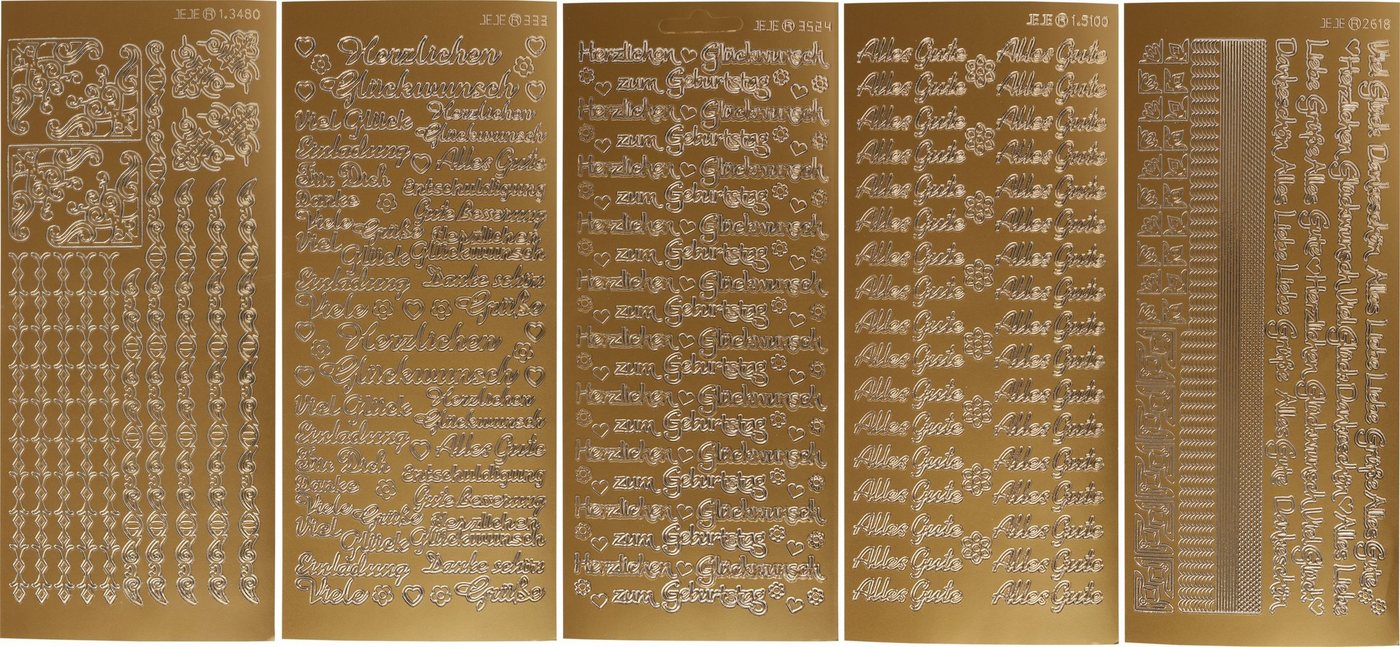 JEJE ® 1.3480
JEJE ® 333
Herzlichen
Glückwunsch
Viel Glück Herzlichen
Glückwunsch
Einladung Alles Gute
Für Dich Entschuldigung
Danke Gute Besserung
Viele Grüße Herzlichen
Viel Glück Glückwunsch
Einladung Danke schön
Viele Grüße
Herzlichen
Glückwunsch
Viel Glück Herzlichen
Glückwunsch
Einladung Alles Gute
Für Dich Entschuldigung
Danke Gute Besserung
Viele Grüße Herzlichen
Viel Glück Glückwunsch
Einladung Danke schön
Viele Grüße
JEJE ® 3524
Herzlichen Glückwunsch
zum Geburtstag
Herzlichen Glückwunsch
zum Geburtstag
Herzlichen Glückwunsch
zum Geburtstag
Herzlichen Glückwunsch
zum Geburtstag
Herzlichen Glückwunsch
zum Geburtstag
Herzlichen Glückwunsch
zum Geburtstag
Herzlichen Glückwunsch
zum Geburtstag
Herzlichen Glückwunsch
zum Geburtstag
Herzlichen Glückwunsch
zum Geburtstag
Herzlichen Glückwunsch
zum Geburtstag
JEJE ® 1.5100
Alles Gute Alles Gute
Alles Gute Alles Gute
Alles Gute Alles Gute
Alles Gute Alles Gute
Alles Gute Alles Gute
Alles Gute Alles Gute
Alles Gute Alles Gute
Alles Gute Alles Gute
Alles Gute Alles Gute
Alles Gute Alles Gute
Alles Gute Alles Gute
Alles Gute Alles Gute
Alles Gute Alles Gute
Alles Gute Alles Gute
Alles Gute Alles Gute
Alles Gute Alles Gute
Alles Gute Alles Gute
JEJE ® 2618
Viel Glück Dankeschön Alles Liebe Liebe Grüße Alles Gute
Herzlichen Glückwunsch Viel Glück Dankeschön Alles Liebe
Liebe Grüße Alles Gute Herzlichen Glückwunsch Viel Glück
Dankeschön Alles Liebe Liebe Grüße Alles Gute Dankeschön